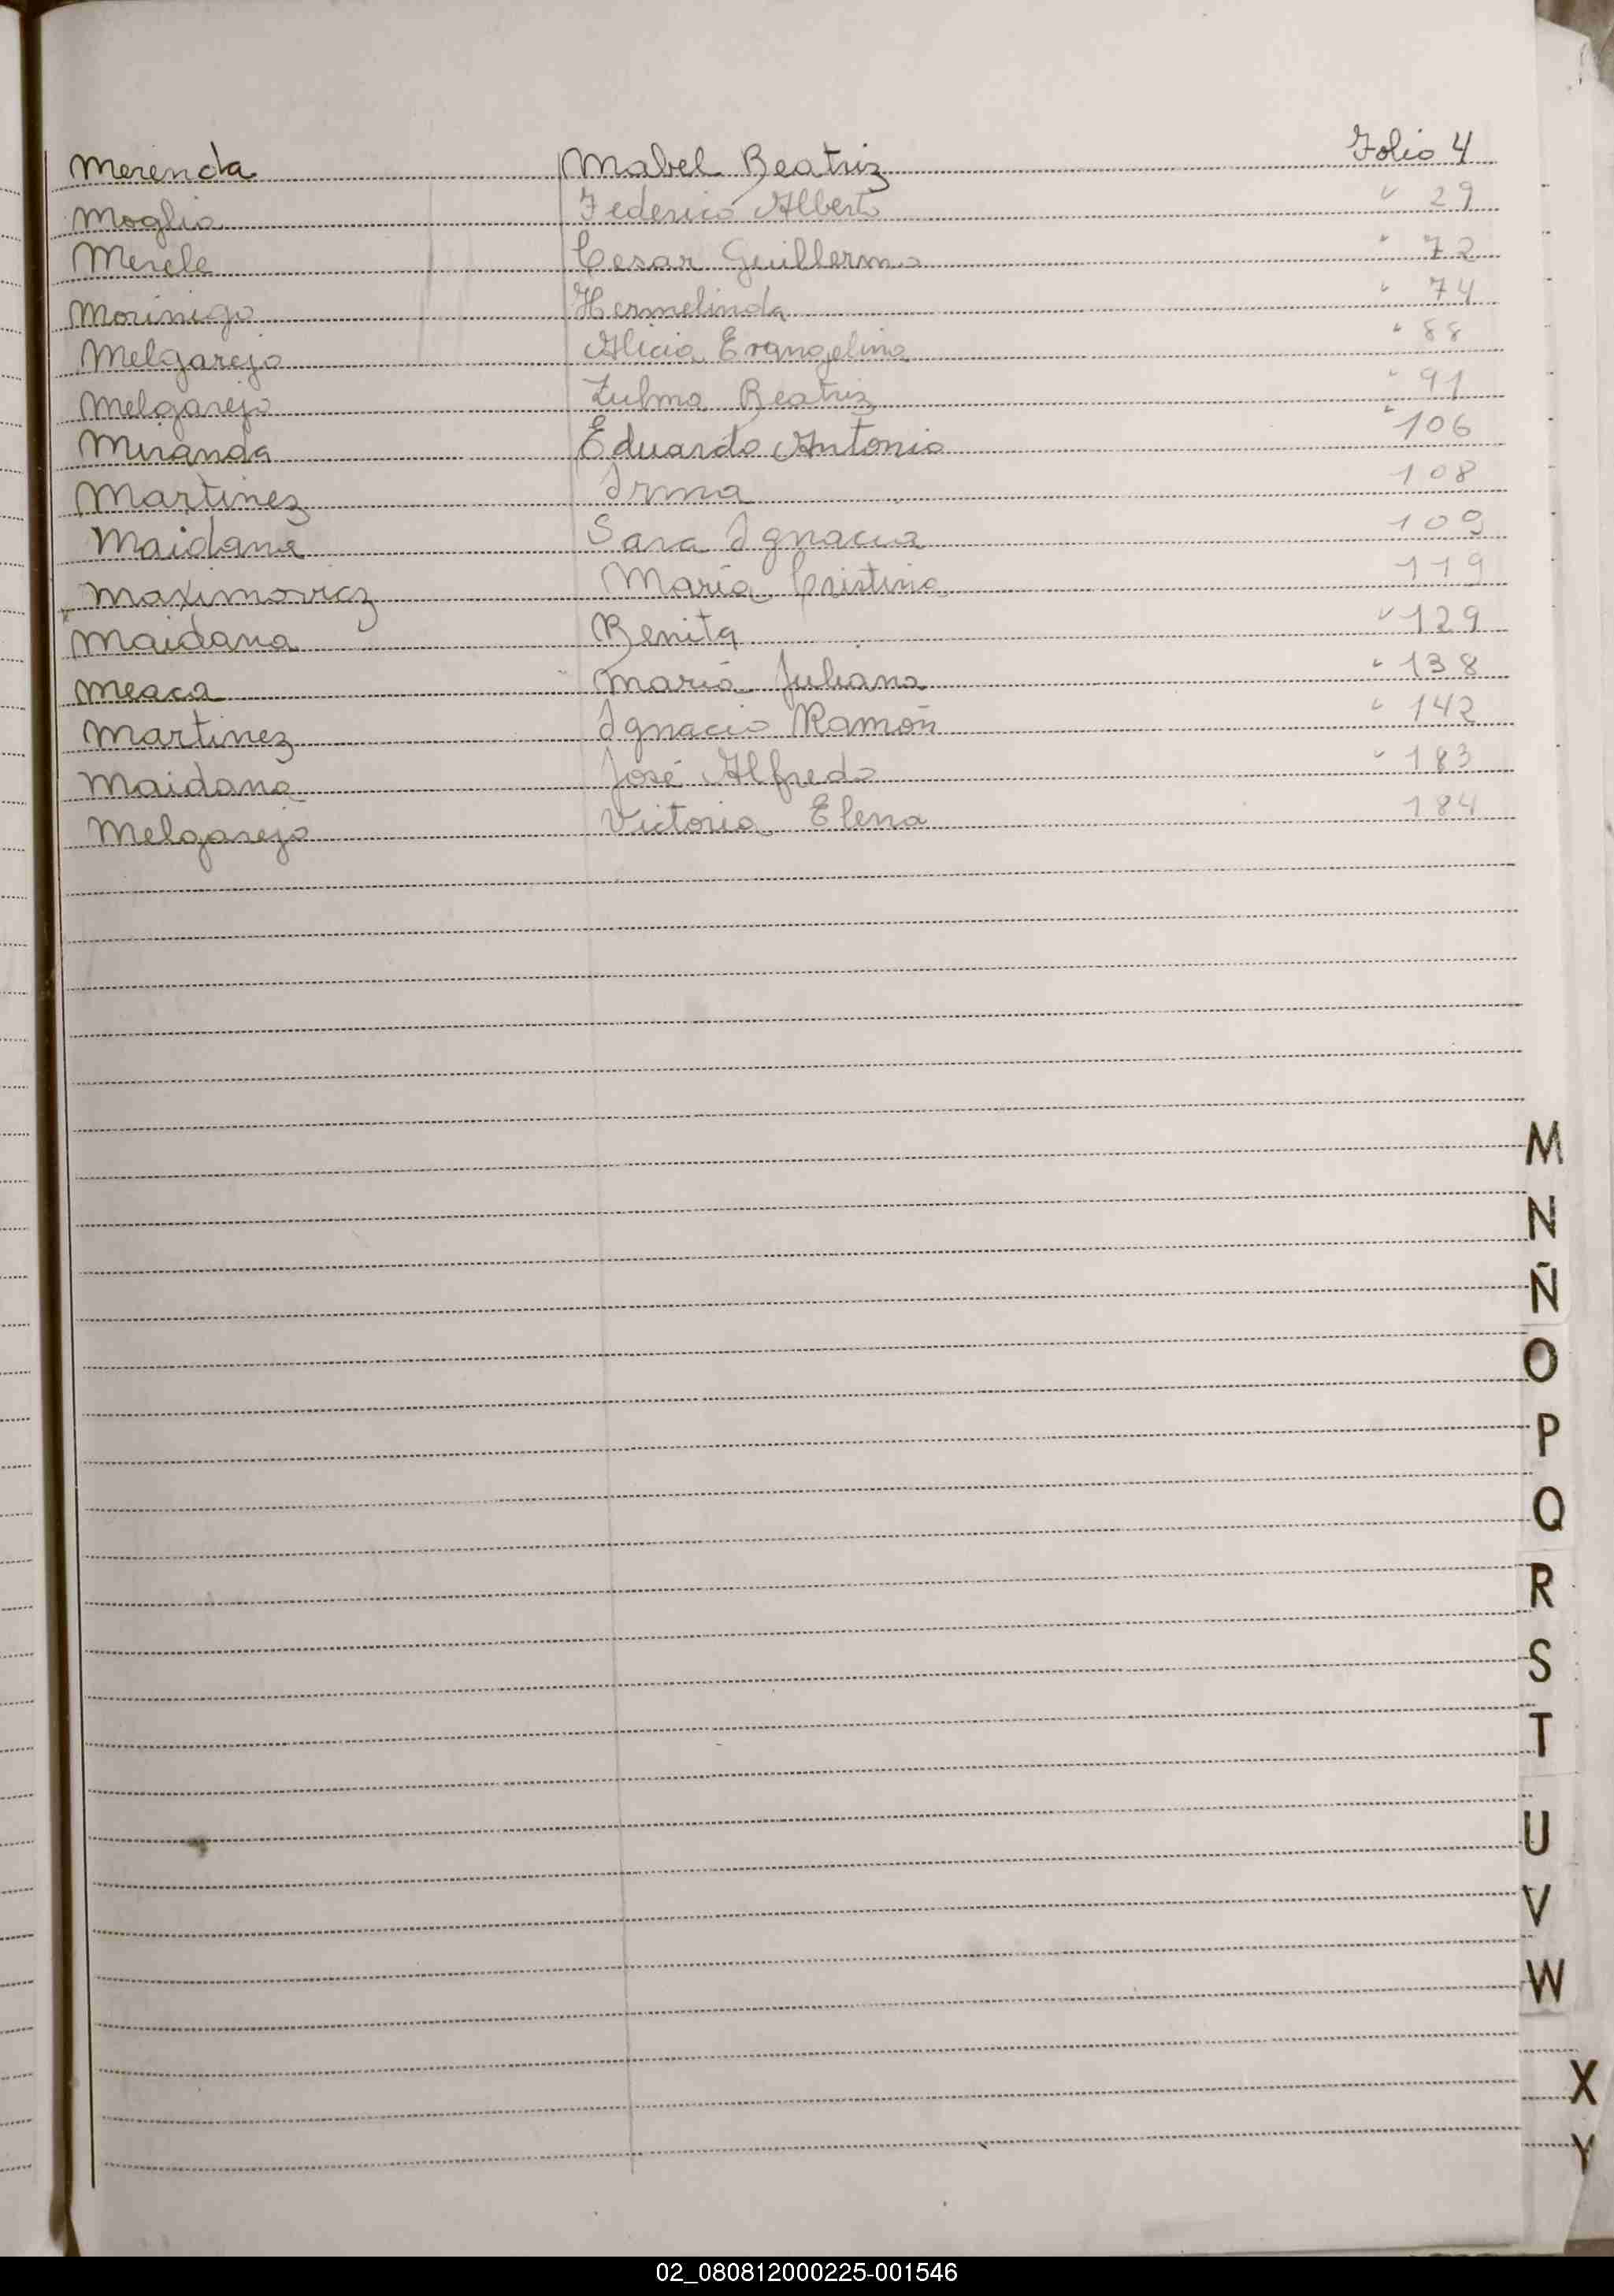 Merenda Mabel Beatriz Folio 4
Moglia Federico Alberto " 29
Merele Cesar Guillermo " 72
Morinigo Hermelinda " 74
Melgarejo Alicia Evangelina " 88
Melgarejo Zulma Beatriz " 91
Miranda Eduardo Antonio " 106
Martinez Irma 108
Maidana Sara Ignacia 109
Maximovicz María Cristina 119
Maidana Benita " 129
Meaca María Juliana " 138
Martinez Ignacio Ramón " 142
Maidana José Alfredo " 183
Melgarejo Victoria Elena 184
M
N
Ñ
O
P
Q
R
S
T
U
V
W
X
Y
02_080812000225-001546